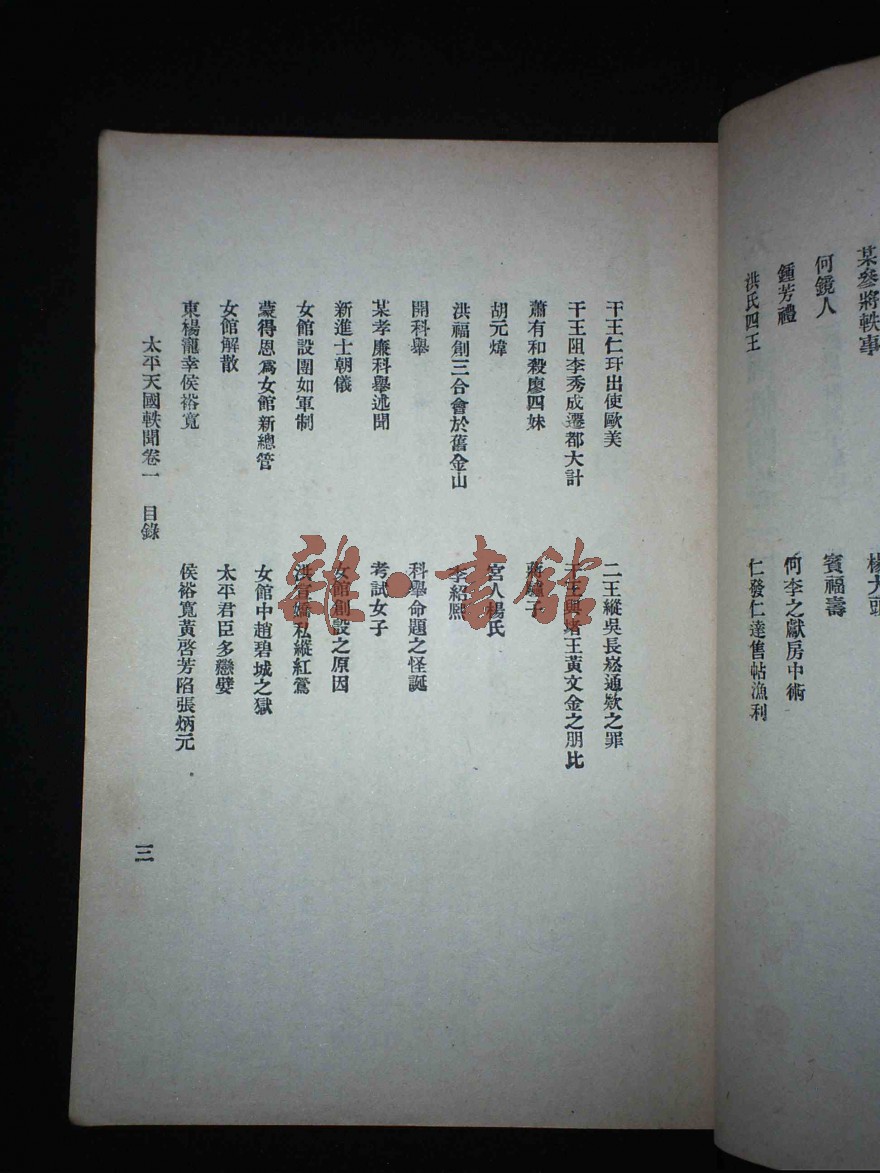 某參將軼事
何鏡人
鍾芳禮
洪氏四王
楊大頭
賓福壽
何李之獻房中術
仁發仁達售帖漁利
干王仁玕出使歐美
干王阻李秀成遷都大計
蕭有和殺廖四妹
胡元煒
洪福創三合會於舊金山
開科舉
某孝廉科舉述聞
新進士朝儀
女館設團如軍制
蒙得恩爲女館新總管
女館解散
東楊寵幸侯裕寬
二王縱吳長崧通欵之罪
干王與堵王黃文金之朋比
蔣驢子
宮人楊氏
李紹熙
科舉命題之怪誕
考試女子
女館創設之原因
洪宣嬌私縱紅鸞
女館中趙碧城之獄
太平君臣多戀嬖
侯裕寬黃啓芳陷張炳元
太平天國軼聞卷一 目錄
三
雜·書館